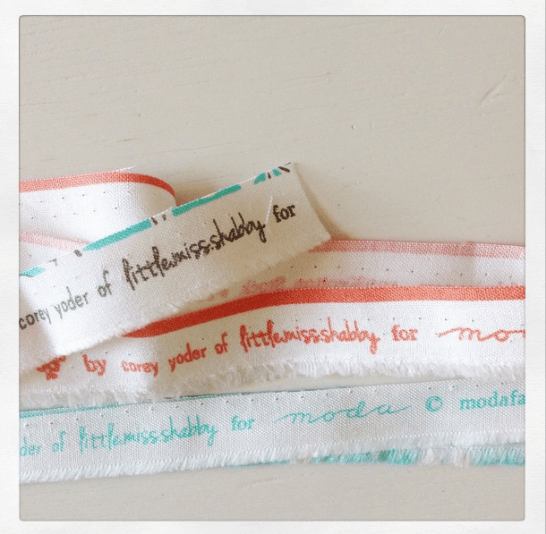 corey yoder of littlemissshabby for
by corey yoder of littlemissshabby for
of littlemissshabby for moda ©